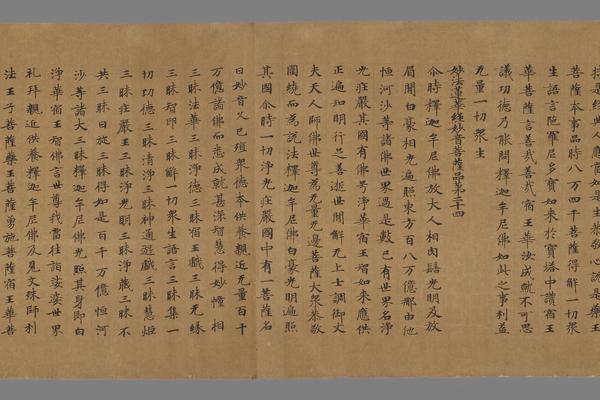 持是經典人應當如是生恭敬心說是藥王
菩薩本事品時八万四千菩薩得解一切衆
生語言陁羅尼多寶如來於寶塔中讃宿王
華菩薩言善哉善哉宿王華汝成就不可思
議功德乃能問釋迦牟尼佛如此之事利益
无量一切衆生
妙法蓮華經妙音菩薩品第二十四
尒時釋迦牟尼佛放大人相肉髻光明及放
眉間白豪相光遍照東方百八万億那由他
恒河沙等諸佛世界過是數已有世界名淨
光莊嚴其國有佛号淨華宿王智如來應供
正遍知明行足善逝世間解无上士調御丈
夫天人師佛世尊爲无量无邊菩薩大衆恭敬
圍繞而爲說法釋迦牟尼佛白豪光明遍照
其國尒時一切淨光莊嚴國中有一菩薩名
曰妙音久已殖衆德本供養親近无量百千
万億諸佛而悉成就甚深智慧得妙幢相
三昧法華三昧淨德三昧宿王戲三昧无緣
三昧智印三昧解一切衆生語言三昧集一
切功德三昧清淨三昧神通遊戲三昧慧炬
三昧莊嚴王三昧淨光明三昧淨藏三昧不
共三昧日旋三昧得如是百千万億恒河
沙等諸大三昧釋迦牟尼佛光照其身即白
淨華宿王智佛言世尊我當往詣娑婆世界
礼拜親近供養釋迦牟尼佛及見文殊師利
法王子菩薩藥王菩薩勇施菩薩宿王華菩